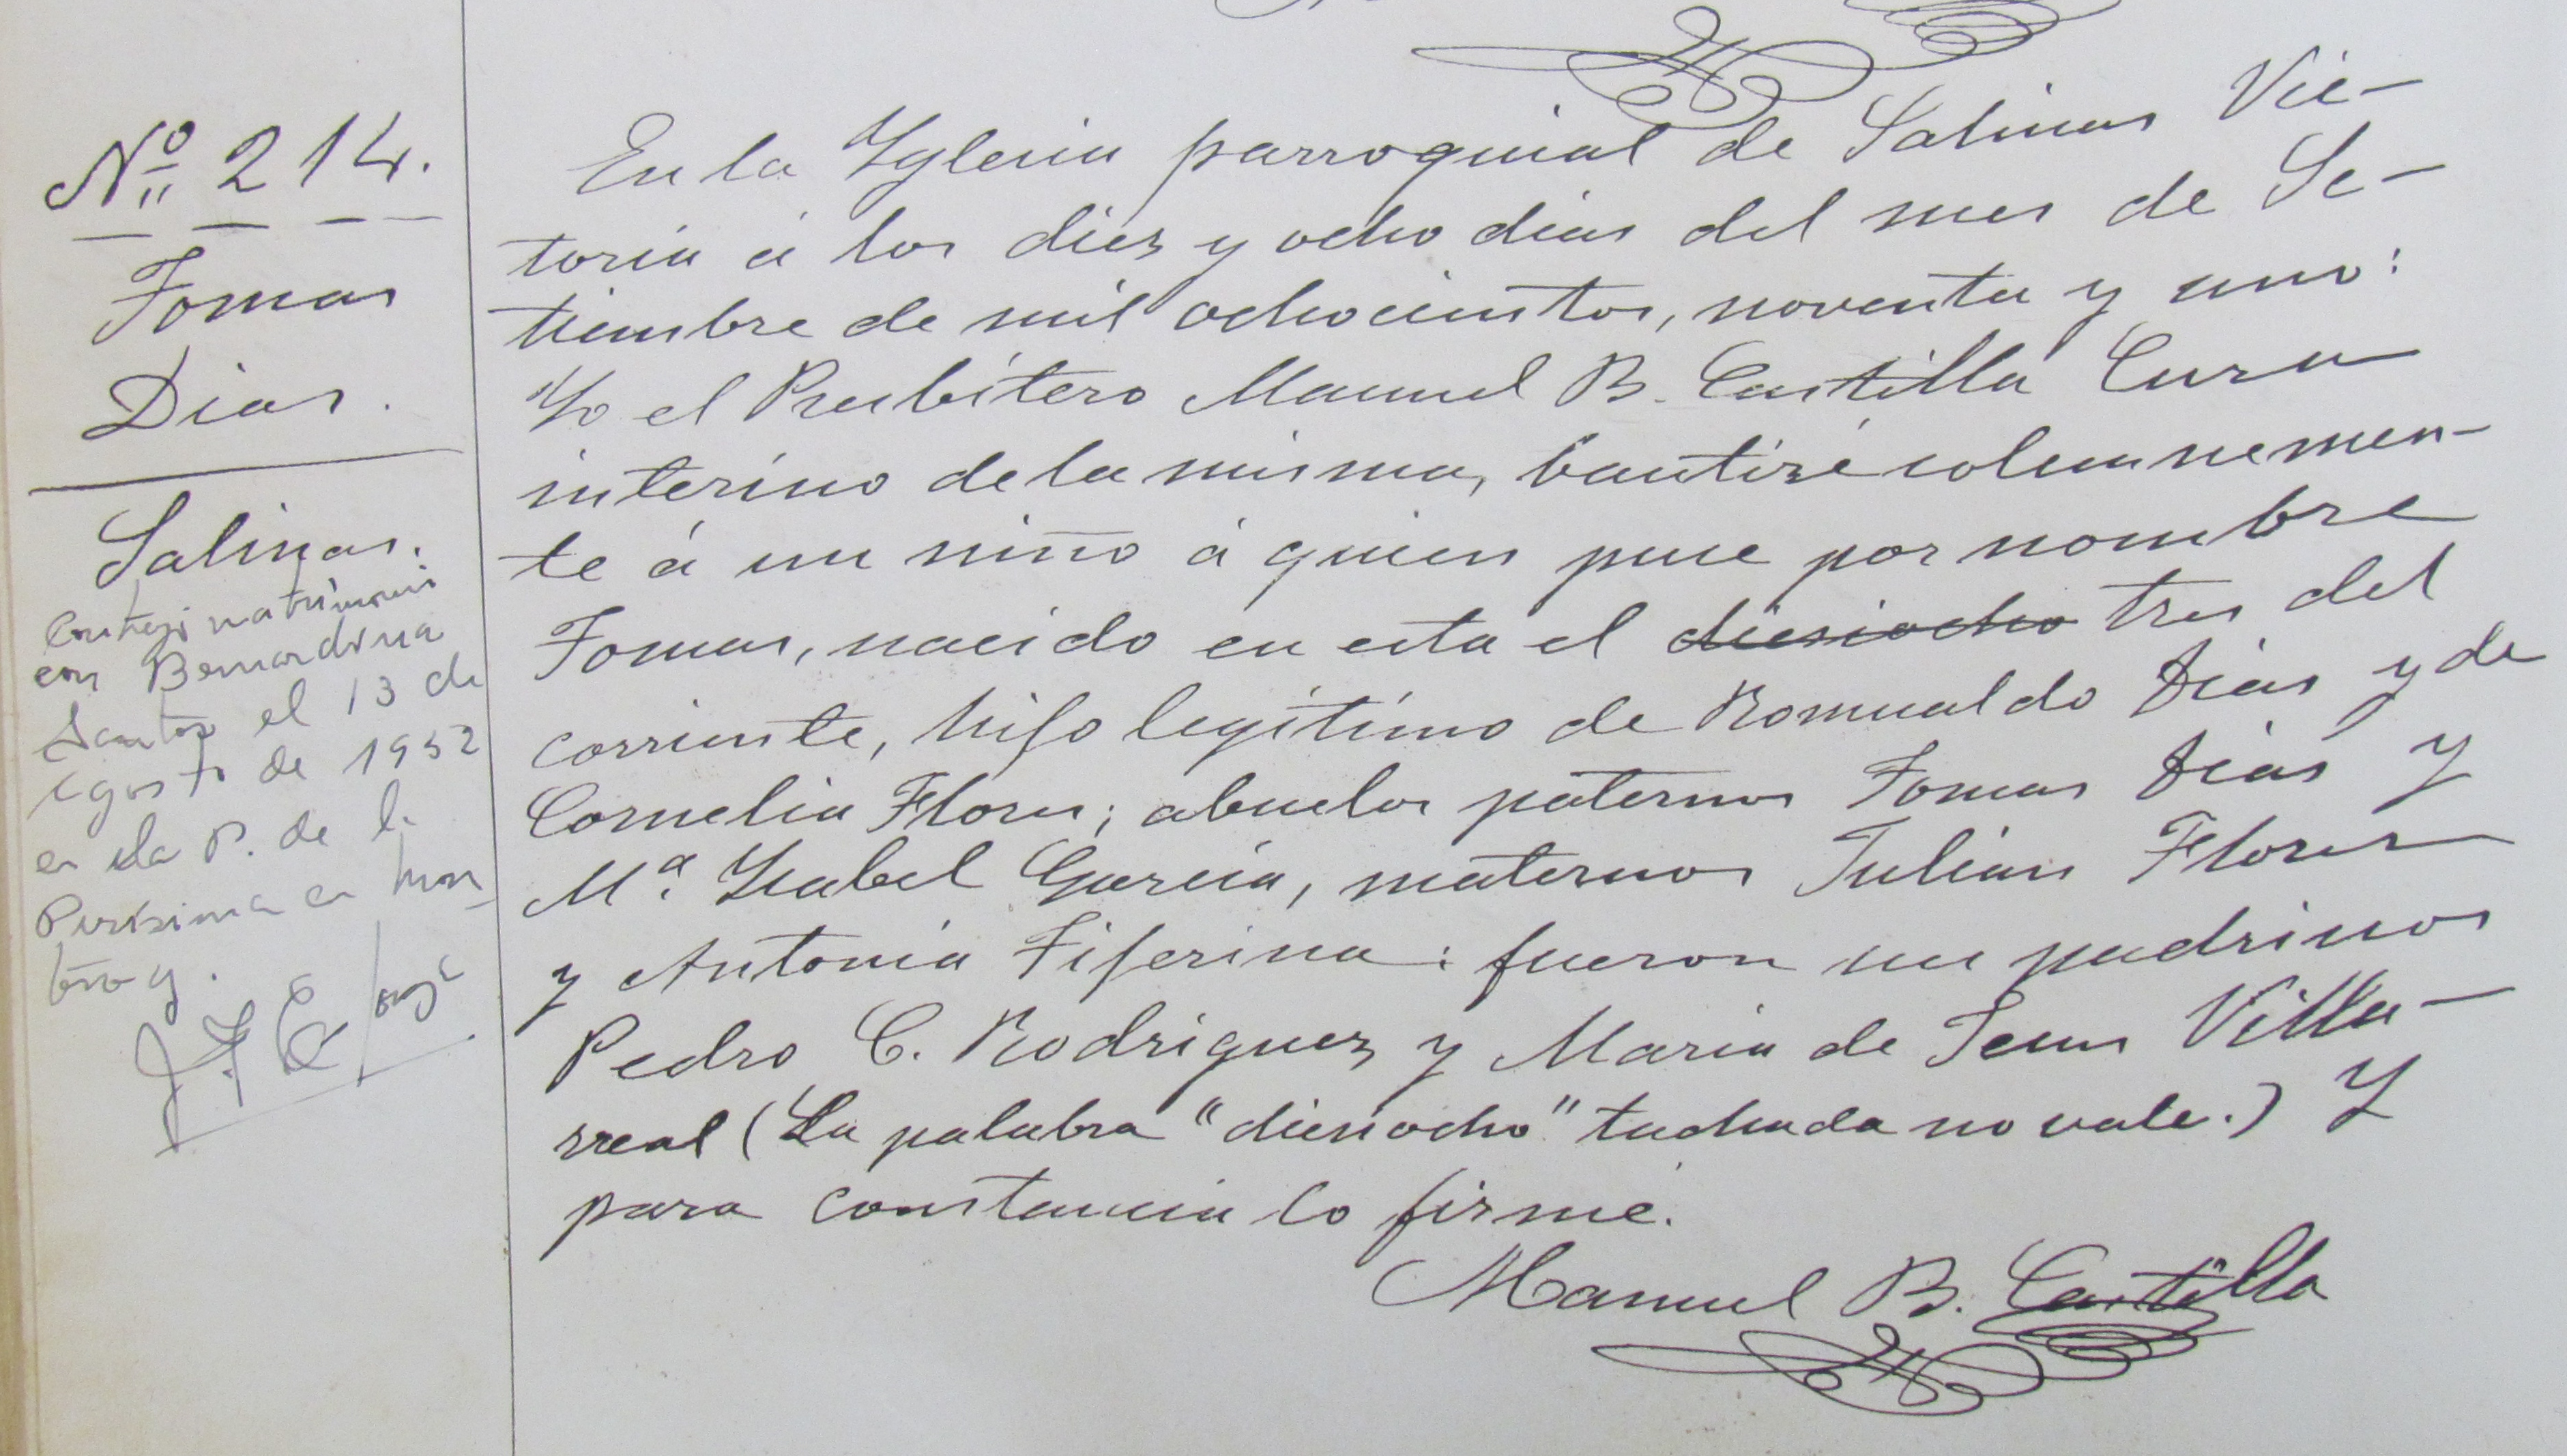 Nº 214.
Tomas
Dias.
Salinas.
Contrajo matrimonio
con Bernardina
Santos el 13 de
Agosto de 1952
en la P. de la
Purísima en Mon
terrey.
En la Yglesia parroquial de Salinas Vic-
toria á los diez y ocho dias del mes de Se-
tiembre de mil ochocientos, noventa y uno:
Yo el Presbítero Manuel B. Castilla Cura
interino de la misma, bautizé solemnemen-
te á un niño á quien puse por nombre
Tomas, nacido en esta el diesiocho tres del
corriente, hijo legítimo de Romualdo Dias y de
Cornelia Flores; abuelos paternos Tomas Dias y
Mª. Ysabel Garcia, maternos Julian Flores
y Antonia Tiferina: fueron sus padrinos
Pedro C. Rodriguez y Maria de Jesus Villa-
rreal (La palabra "diesiocho" tachada no vale.) Y
para constancia lo firmé.
Manuel B. Castilla